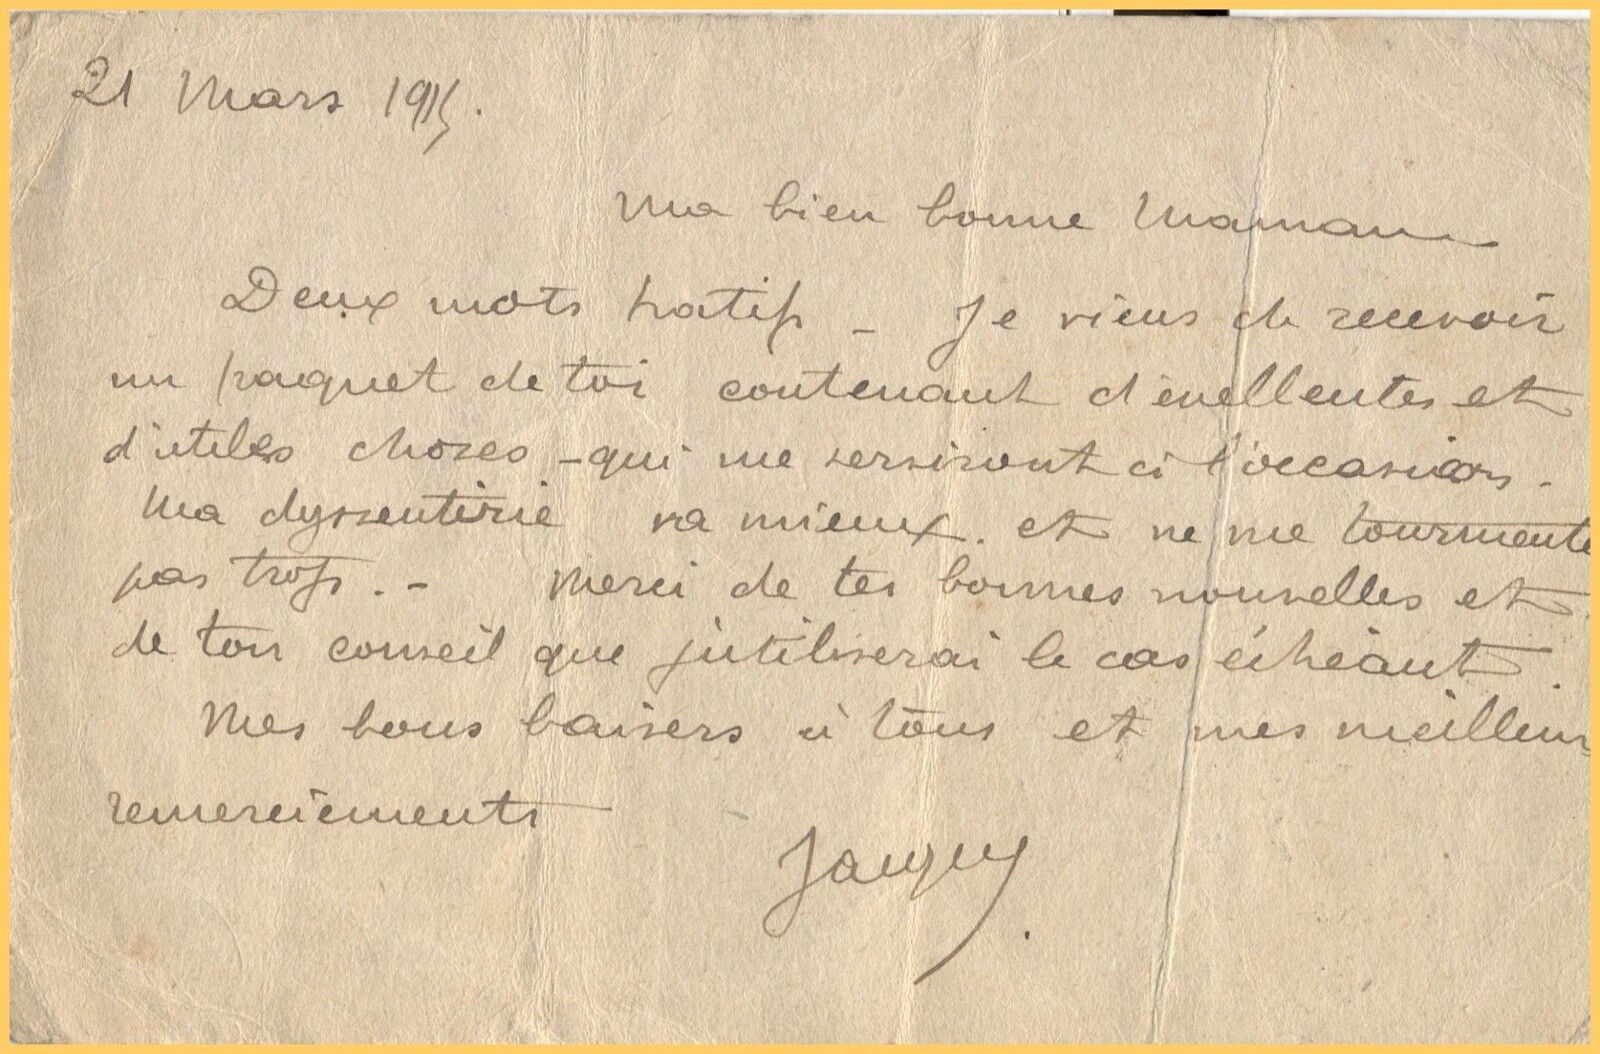 21 Mars 1915.
Ma bien bonne Maman
Deux mots hatifs - Je viens de recevoir
un paquet de toi contenant d'excellentes et
d'utiles choses - qui me serviront à l'occasion.
Ma dyssenterie va mieux. et ne me tourmente
pas trop. - Merci de tes bonnes nouvelles et
de ton conseil que j'utiliserai le cas échéant.
Mes bons baisers à tous et mes meilleurs
remerciements